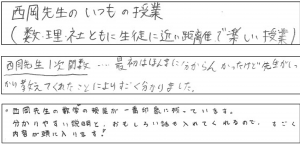 西岡先生のいつもの授業
(数・理・社ともに生徒に近い距離で楽しい授業)
西岡先生 1次関数…最初はほんまに分からんかったけど先生がしっ
かり教えてくれたことによりすごく分かりました。
・西岡先生の数学の授業が一番印象に残っています。
分かりやすい説明と、おもしろい話も入れてくれるので、すごく
内容が頭に入ります!